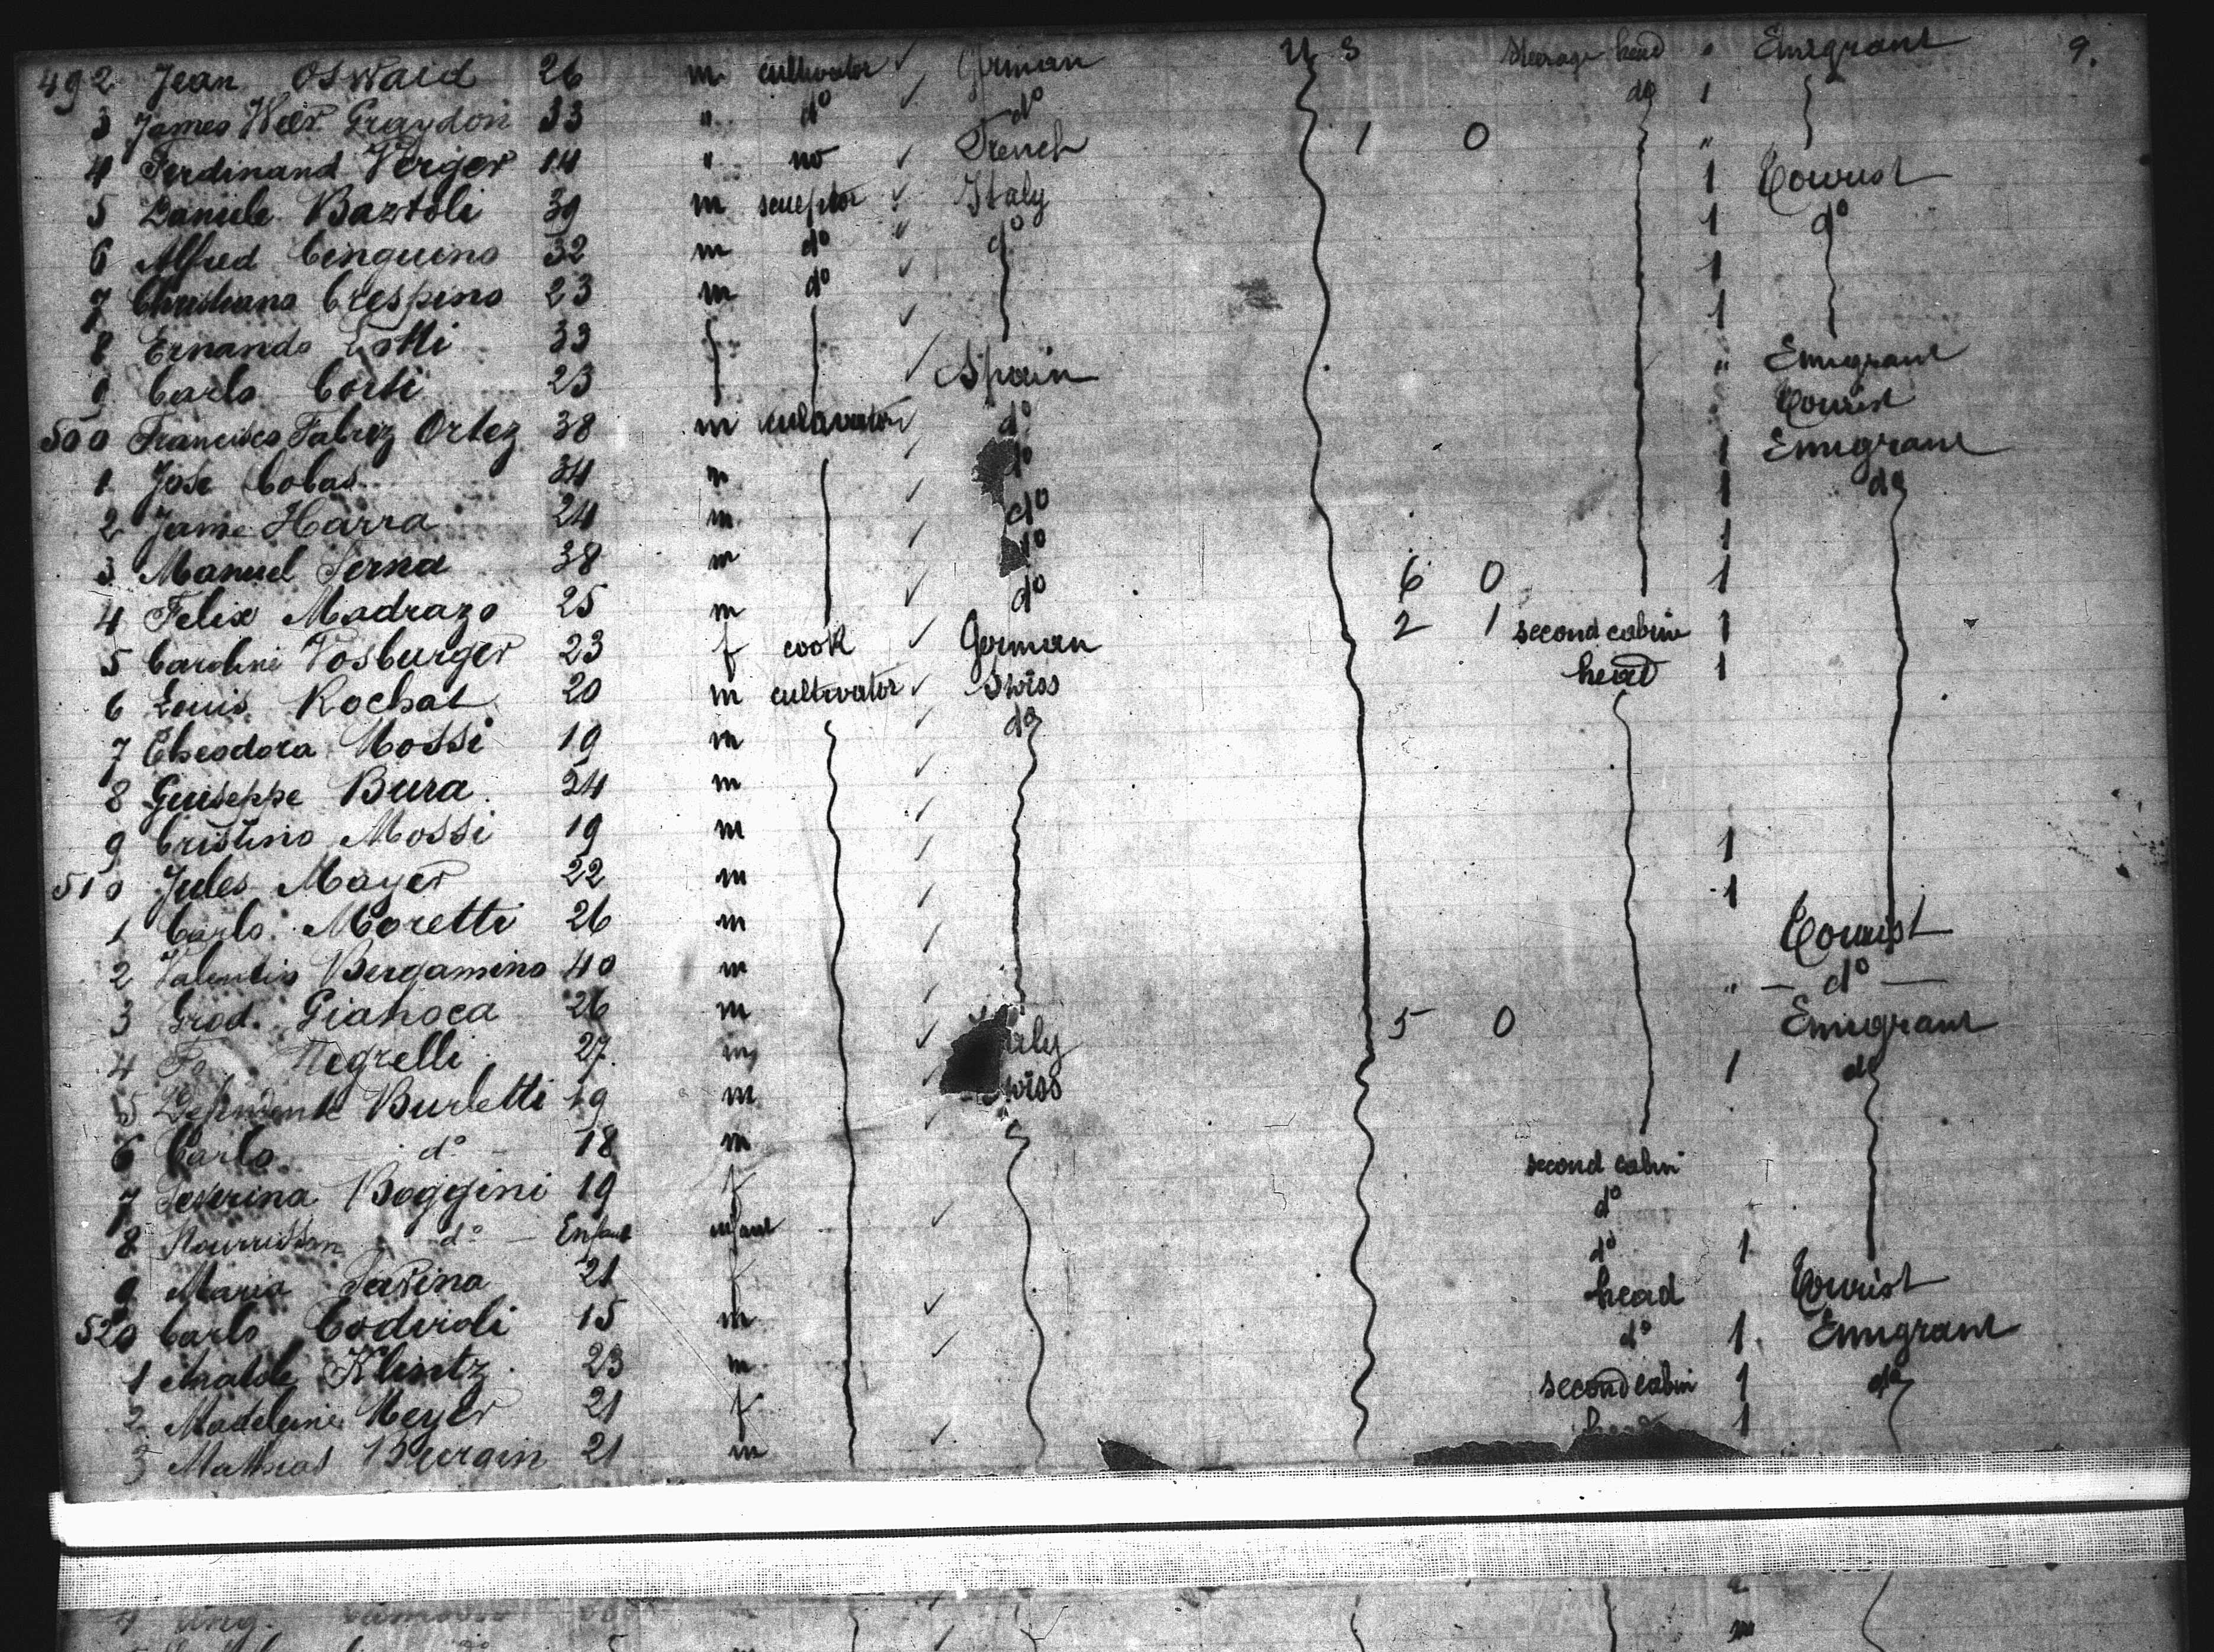 492 Jean Oswald 26 m cultivator ✓ German U S Steerage head " Emigrant 9.
3 James Weir Graydon 33 " do ✓ do do 1
4 Ferdinand Verger 14 " no ✓ French 1 0 "
5 Daniele Baztoli 39 m sculptor ✓ Italy 1 Tourist
6 Alfred Cinquino 32 m do ✓ do 1 do
7 Christiano Crespino 23 m do ✓ 1
8 Ernando 33 ✓ 1
9 Carlo Corti 23 ✓ Spain " Emigrant
Tourist
500 Francisco Fabrez Ortez 38 m cultivator ✓ do 1 Emigrant
1 Jose Cobas 34 m ✓ do 1 do
2 Jame Harra 24 m ✓ do 1
3 Manuel Serna 38 m ✓ do 6 0 1
4 Felix Madrazo 25 m ✓ do 2 1 second cabin 1
5 Caroline Vosburger 23 f cook ✓ German head 1
6 Louis Rochat 20 m cultivator ✓ Swiss
7 Theodora Mossi 19 m ✓ do
8 Guiseppe Bura 24 m ✓
9 Cristino Mossi 19 m ✓ 1
510 Jules Mayer 22 m ✓ 1
1 Carlo Moretti 26 m ✓ Tourist
2 Valentin Bergamino 40 m ✓ " — do —
3 Grod. Gianoca 26 m ✓ 5 0 Emigrant
4 Negrelli 27 m ✓ aly 1 do
5 Burletti 19 m ✓ wiss
6 Carlo do 18 m ✓ second cabin
7 Severina Boggini 19 f do
8 Nourrisson do — Enfant infant ✓ do 1
9 Maria 21 f head Tourist
520 Carlo Codiroli 15 m ✓ do 1 Emigrant
1 Klintz 23 m ✓ second cabin 1 do
2 Madeleine Meyer 21 f head 1
3 Mathias Bourgin 21 m ✓
4